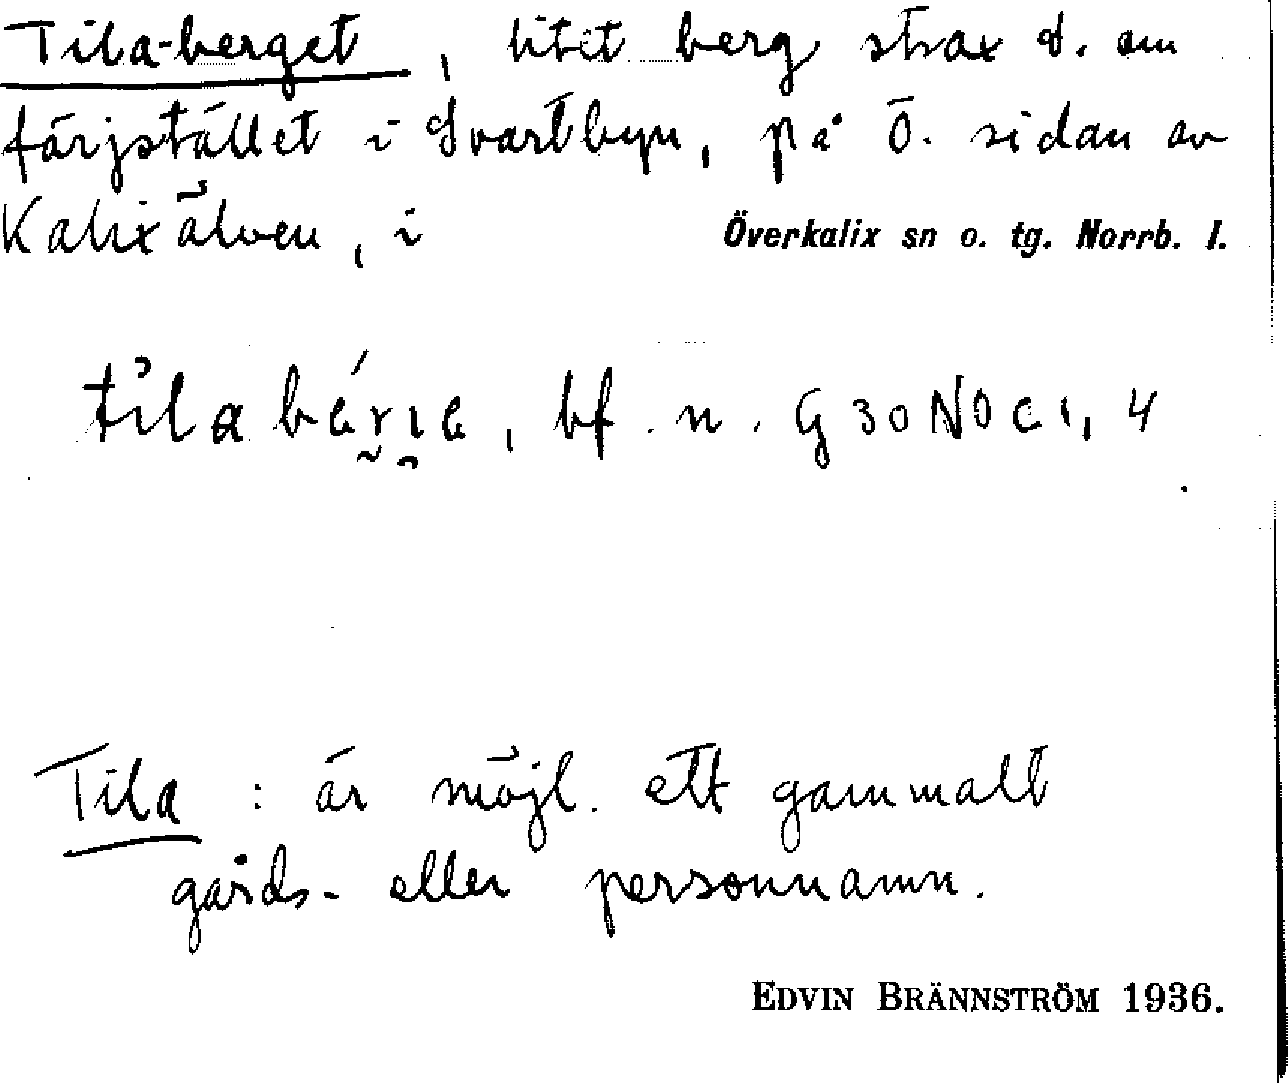 Tila-berget, litet berg strax S. om
färjstället i Svartbyn, på Ö. sidan av
Kalixälven, i Överkalix sn o. tg. Norrb. l.
bf. n. G 30 NO c 1, 4
Tila : är möjl. ett gammalt
gårds- eller personnamn.
EDVIN BRÄNNSTRÖM 1936.